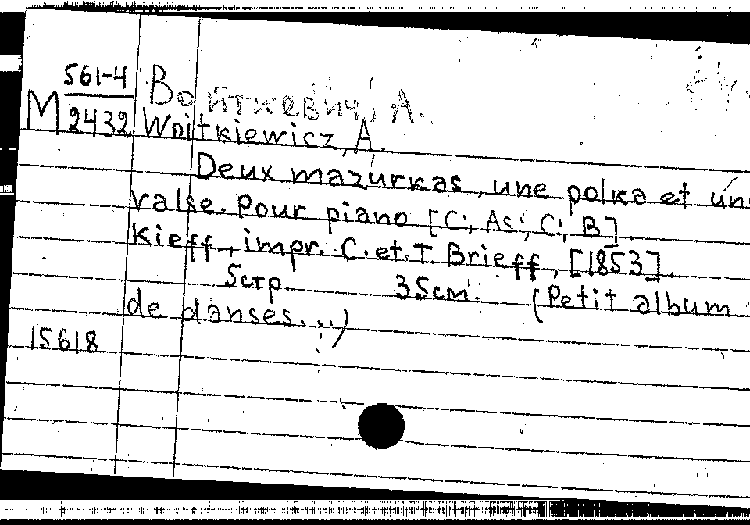 M 561-4/2432 Войткевич, А.
Woitkiewicz, A.
Deux mazurkas, une polka et une
valse. Pour piano [C; As; C; B].
Kieff, impr. C. et. T. Brieff, [1853].
5стр. 35см. (Petit album
de danses...)
15618